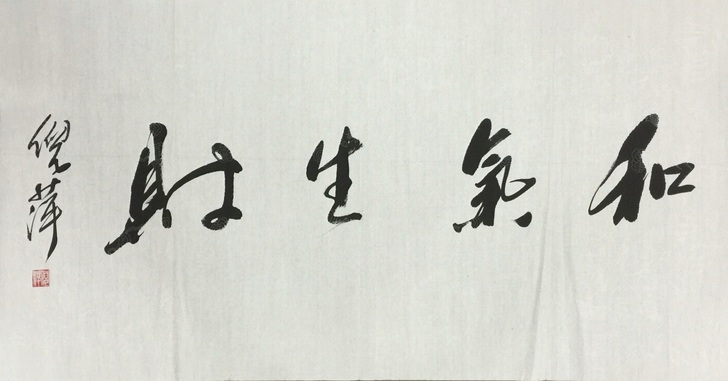 和氣生財
倪萍